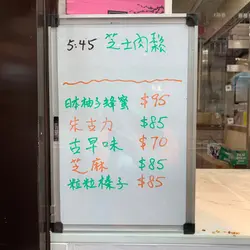 5:45 芝士肉鬆
日本柚子蜂蜜 $95
朱古力 $85
古早味 $70
芝麻 $85
粒粒榛子 $85